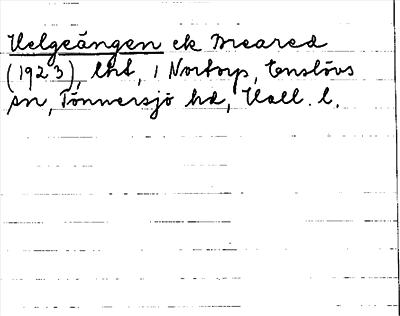 Helgeängen ek Breared
(1923), lht, i Nortorp, Enslövs
sn, Tönnersjö hd, Hall. l.